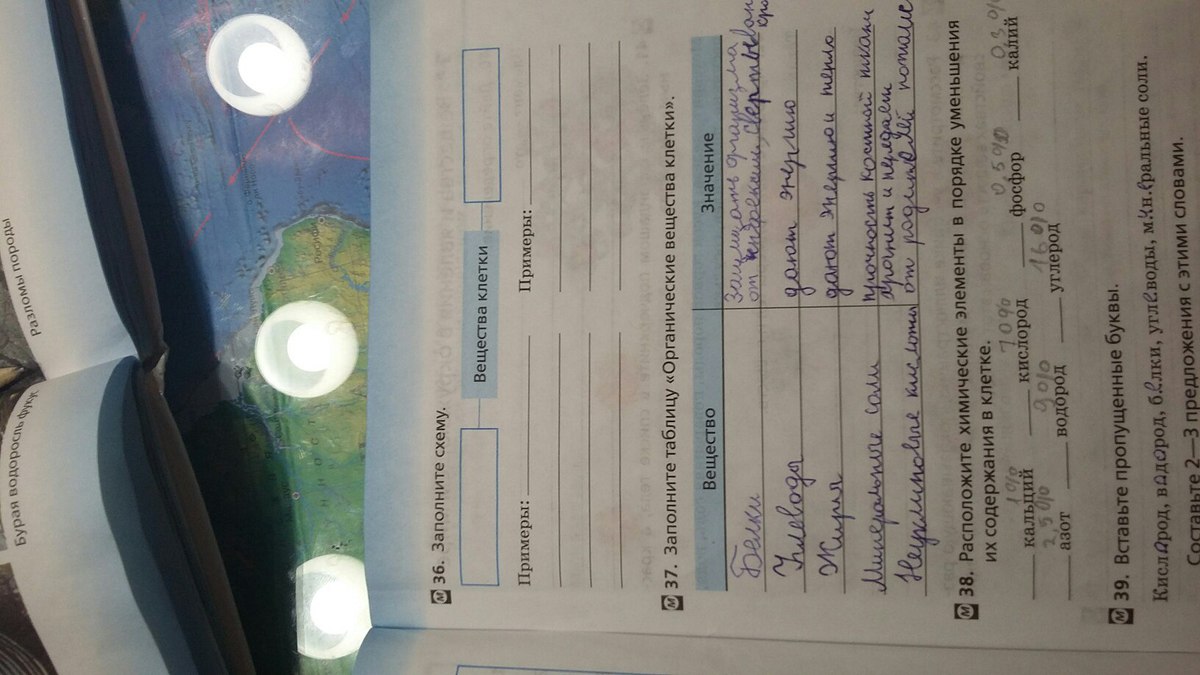 Разломы породы
Бурая водоросль фукус
36. Заполните схему.
Вещества клетки
Примеры:
Примеры:
37. Заполните таблицу «Органические вещества клетки».
Вещество
Значение
Белки
Защищать организма
от инфекции, свертыван
кро
Углеводы
дают энергию
Жиры
дают энергию и тепло
Минеральные соли
прочность костной ткани
Неуклиновые кислоты
прочитн и передаем
от родителей потомс
М 38. Расположите химические элементы в порядке уменьшения
их содержания в клетке.
1% 70% 0,5% 0,3%
кальций кислород фосфор калий
2,5% 9% 16%
азот водород углерод
М 39. Вставьте пропущенные буквы.
Кислород, водород, белки, углеводы, минеральные соли.
Составьте 2—3 предложения с этими словами.